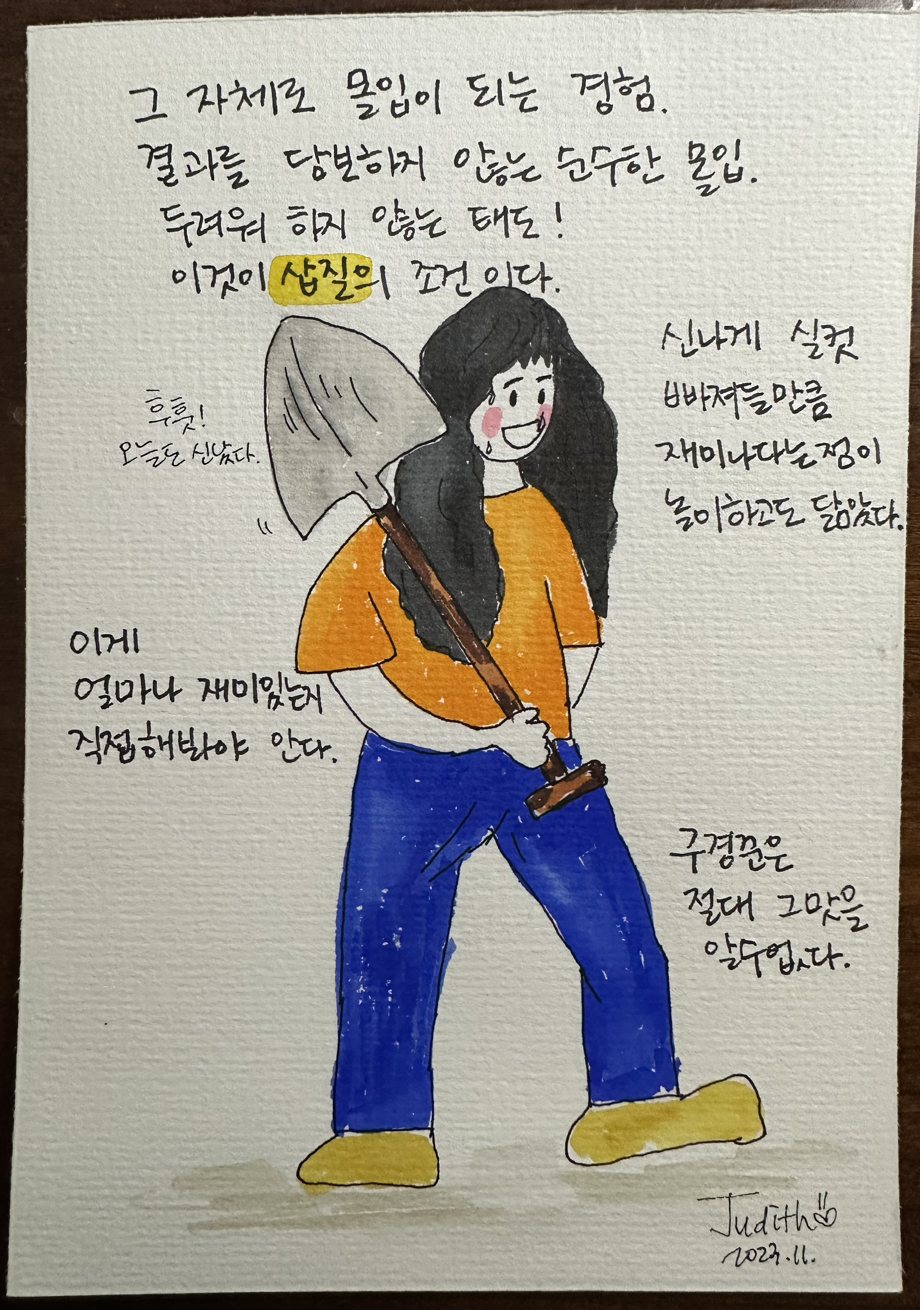 그 자체로 몰입이 되는 경험.
결과를 담보하지 않는 순수한 몰입.
두려워 하지 않는 태도!
이것이 삽질의 조건 이다.
신나게 실컷
빠져들만큼
재미나다는점이
놀이하고도 닮았다.
후훗!
오늘도 신났다.
이게
얼마나 재미있는지
직접해봐야 안다.
구경꾼은
절대 그맛을
알수없다.
Judith
2023.11.